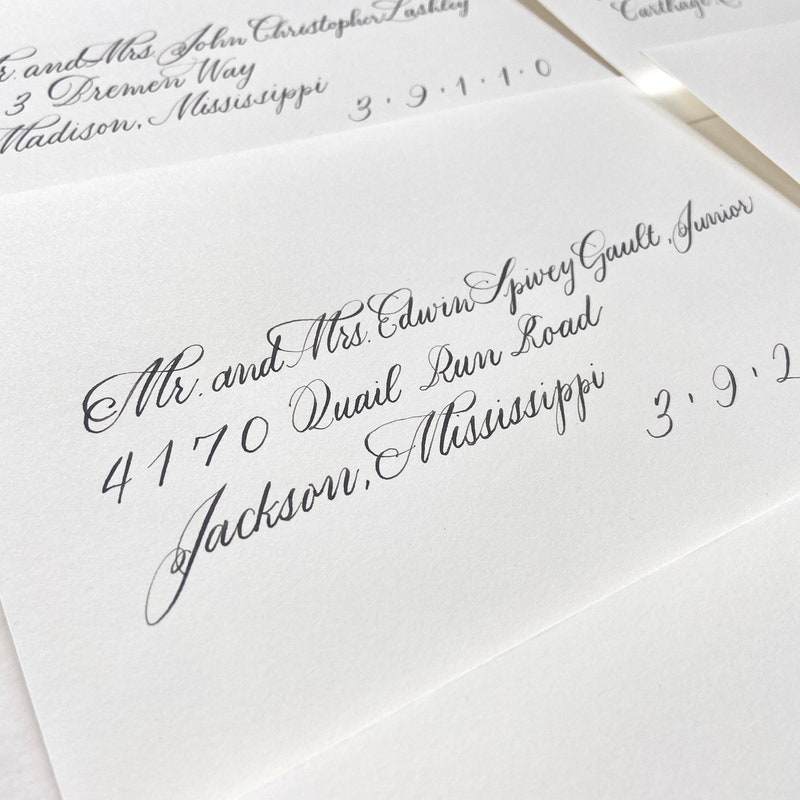 Mr. and Mrs. John Christopher Lashley
3 Bremen Way
Madison, Mississippi 3·9·1·1·0
Carthage,
Mr. and Mrs. Edwin Spivey Gault, Junior
4170 Quail Run Road
Jackson, Mississippi 3·9·2